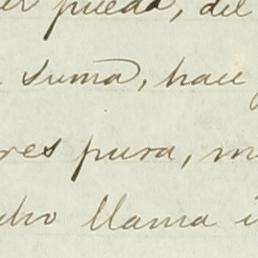 pueda, del
suma, hace
res pura, m
dro llama i